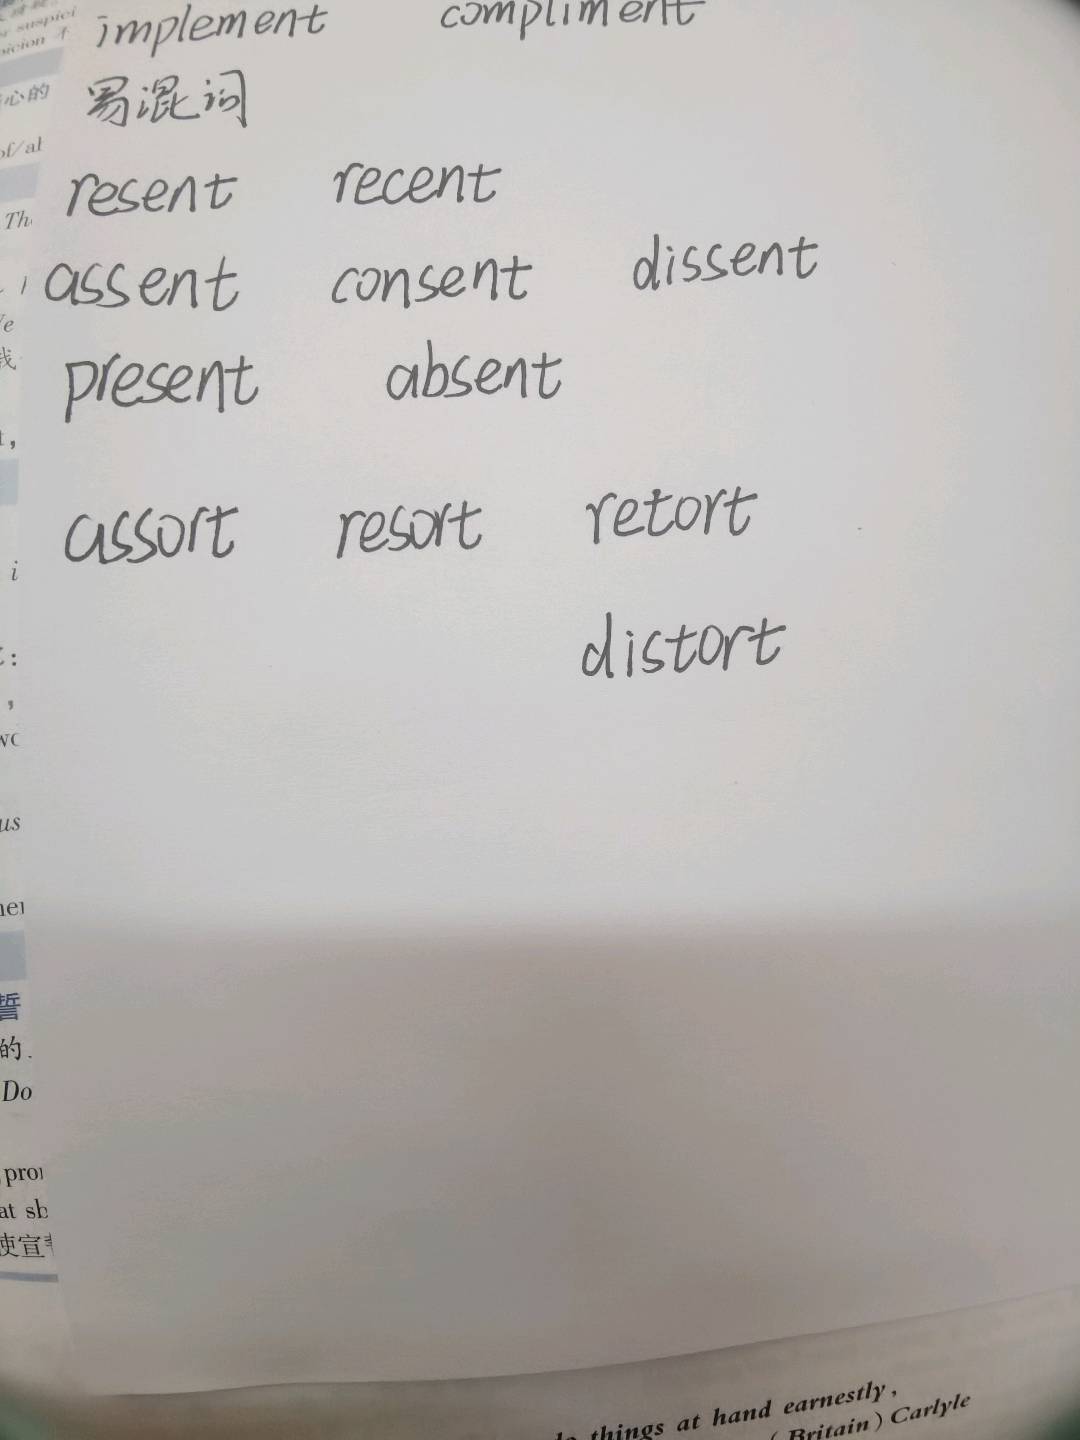 suspici
picion
implement compliment
心的
易混词
of/al
resent recent
Th
assent consent dissent
present absent
assort resort retort
i
distort
us
誓
的
Do
at sh
使宣
things at hand earnestly,
(Britain) Carlyle